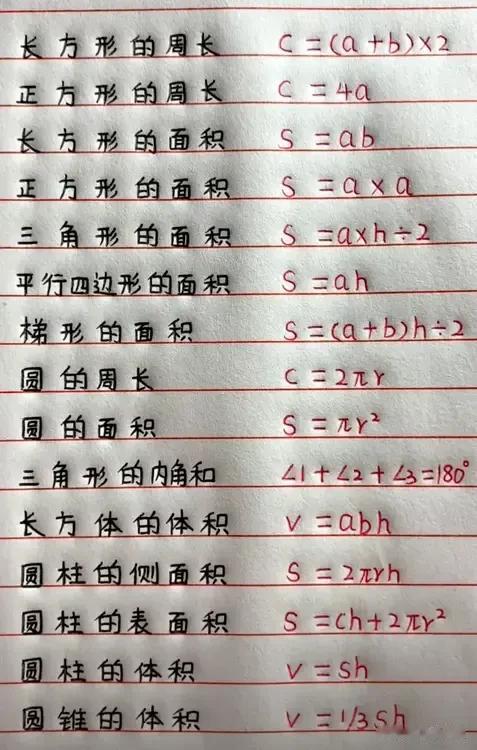 长方形的周长 C=(a+b)×2
正方形的周长 C=4a
长方形的面积 S=ab
正方形的面积 S=a×a
三角形的面积 S=a×h÷2
平行四边形的面积 S=ah
梯形的面积 S=(a+b)h÷2
圆的周长 C=2πr
圆的面积 S=πr²
三角形的内角和 ∠1+∠2+∠3=180°
长方体的体积 V=abh
圆柱的侧面积 S=2πrh
圆柱的表面积 S=Ch+2πr²
圆柱的体积 V=Sh
圆锥的体积 V=1/3Sh